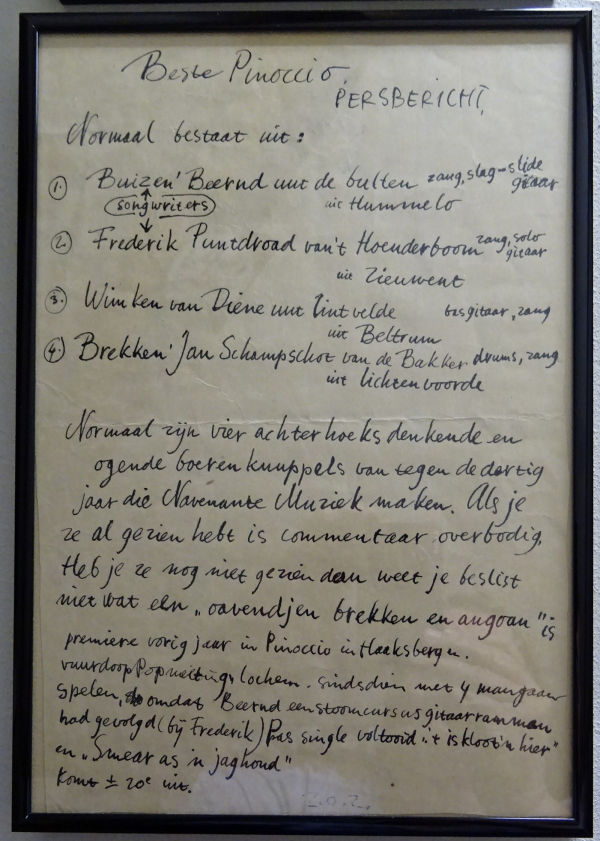 Beste Pinoccio.
PERSBERICHT,
Normaal bestaat uit:
1. Buizen' Beernd uut de bulten zang, slag- slide gitaar
uit Hummelo
songwriters
2. Frederik Puntdroad van't Hoenderboom zang, solo gitaar
uit Zieuwent
3. Wimken van Diene uut Lintvelde basgitaar, zang
uit Beltrum
4. Brekken' Jan Schampschot van de Bakker drums, zang
uit lichtenvoorde
Normaal zijn vier achterhoeks denkende en
ogende boerenknuppels van tegen de dertig
jaar die Navenante Muziek maken. Als je
ze al gezien hebt is commentaar overbodig.
Heb je ze nog niet gezien dan weet je beslist
niet wat een „oavendjen brekken en angoan" is
premiere vorig jaar in Pinoccio in Haaksbergen.
vuurdoop Popmeeting lochem. sindsdien met 4 man gaan
spelen, omdat Beernd een stoomcursus gitaarrammen
had gevolgd (bij Frederik) Pas single voltooid „'t is kloot'n hier"
en „Smear as 'n jaghond"
komt ± 20e uit.